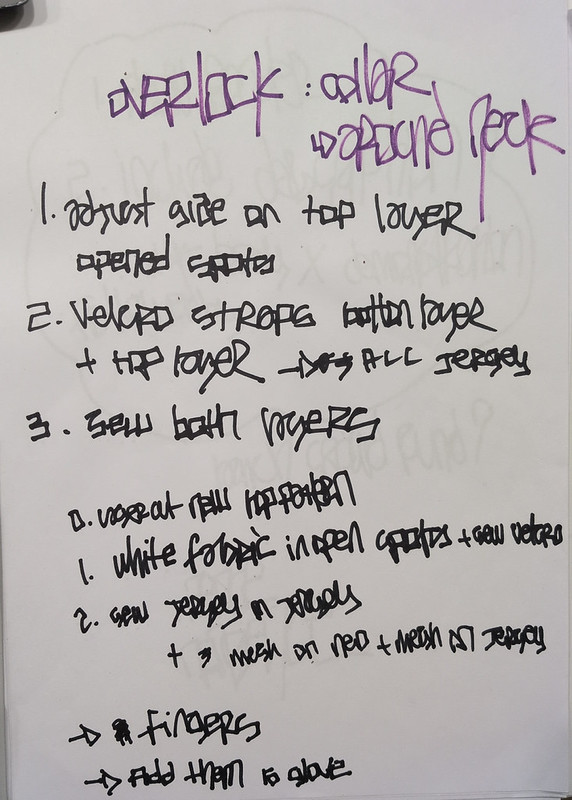 OVERLOCK : COLLAR
→ AROUND NECK
1. adjust size on top layer
opened spots
2. Velcro STRAPS bottom layer
+ TOP layer → ALL Jersey
3. Sew both layers
0. lasercut new top pattern
1. white fabric in open spots + sew velcro
2. sew Jersey on Jersey
+ mesh on neo + mesh on Jersey
→ fingers
→ Add them to glove